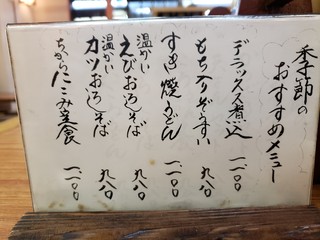 季節の
おすすめメニュー
デラックス煮込 一、一〇〇
もち入りぞうすい 九八〇
すき焼うどん 一、一〇〇
温かい
えびおろしそば 九八〇
温かい
カツおろしそば 九八〇
ちからにこみ定食 一、一〇〇